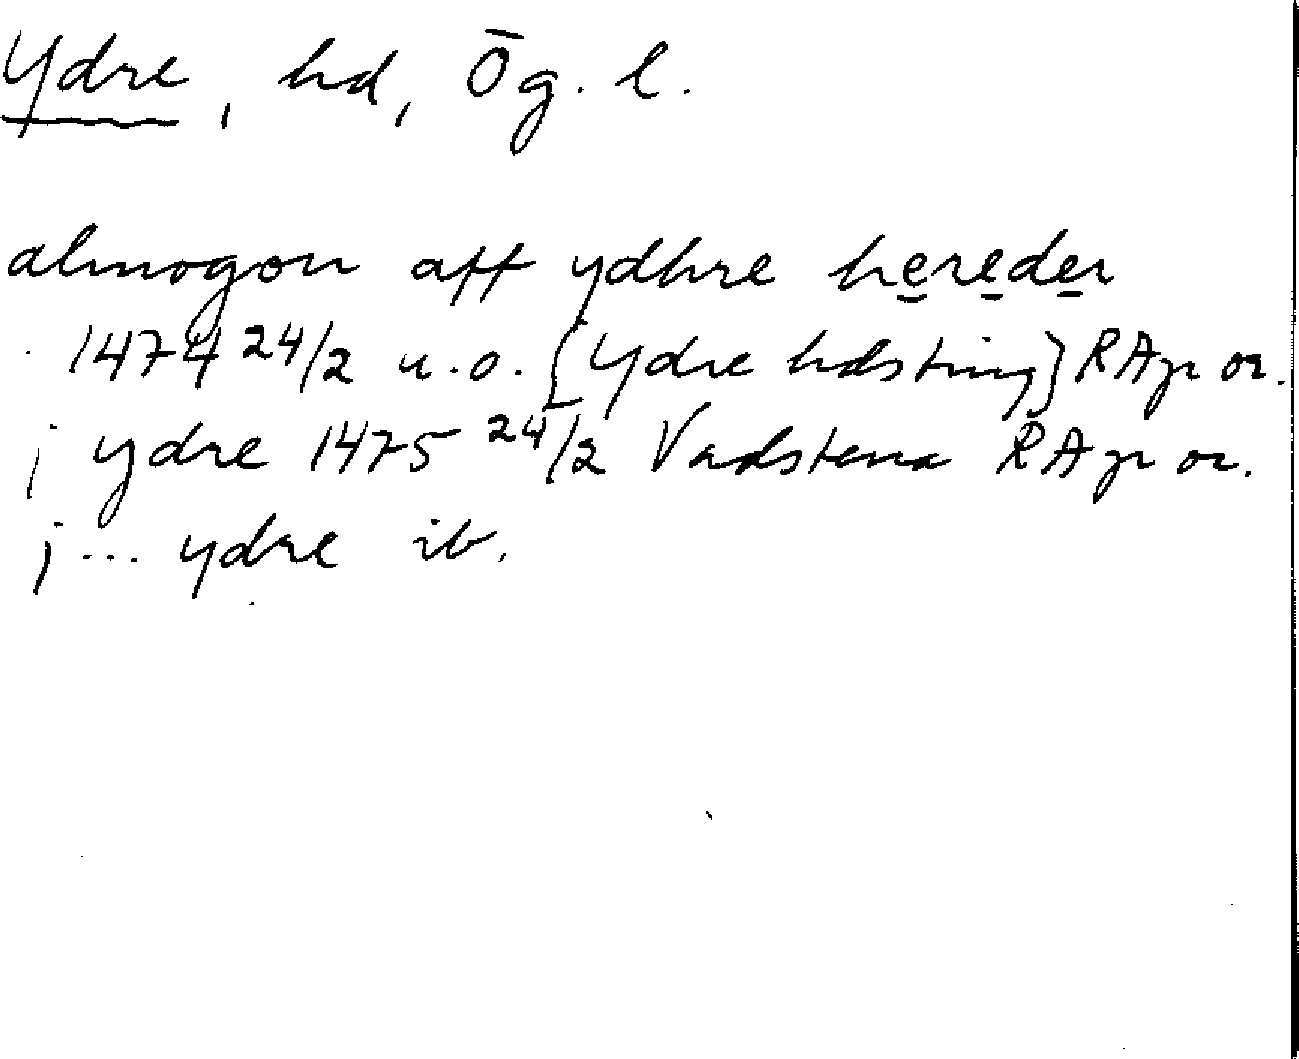 Ydre, hd, Ög. l.
almogon aff ydhre hereder
1474 24/2 u.o. [Ydre hdsting] RAp or.
j ydre 1475 24/2 Vadstena RAp or.
j ... ydre ib.